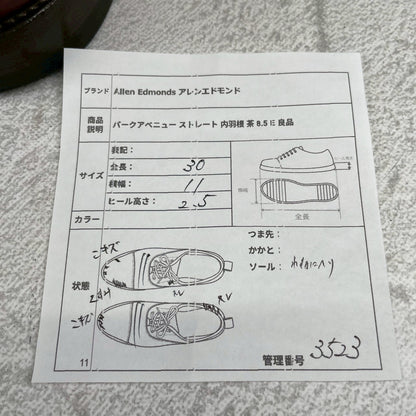 ブランド Allen Edmonds アレンエドモンド
商品説明 パークアベニュー ストレート 内羽根 茶 8.5 E 良品
サイズ
表記：
全長： 30
横幅： 11
ヒール高さ： 2.5
横幅
ヒール高さ
全長
カラー
状態
こキズ
スレ
スレ
こキズ
つま先：
かかと：
ソール：
11
管理番号 3523